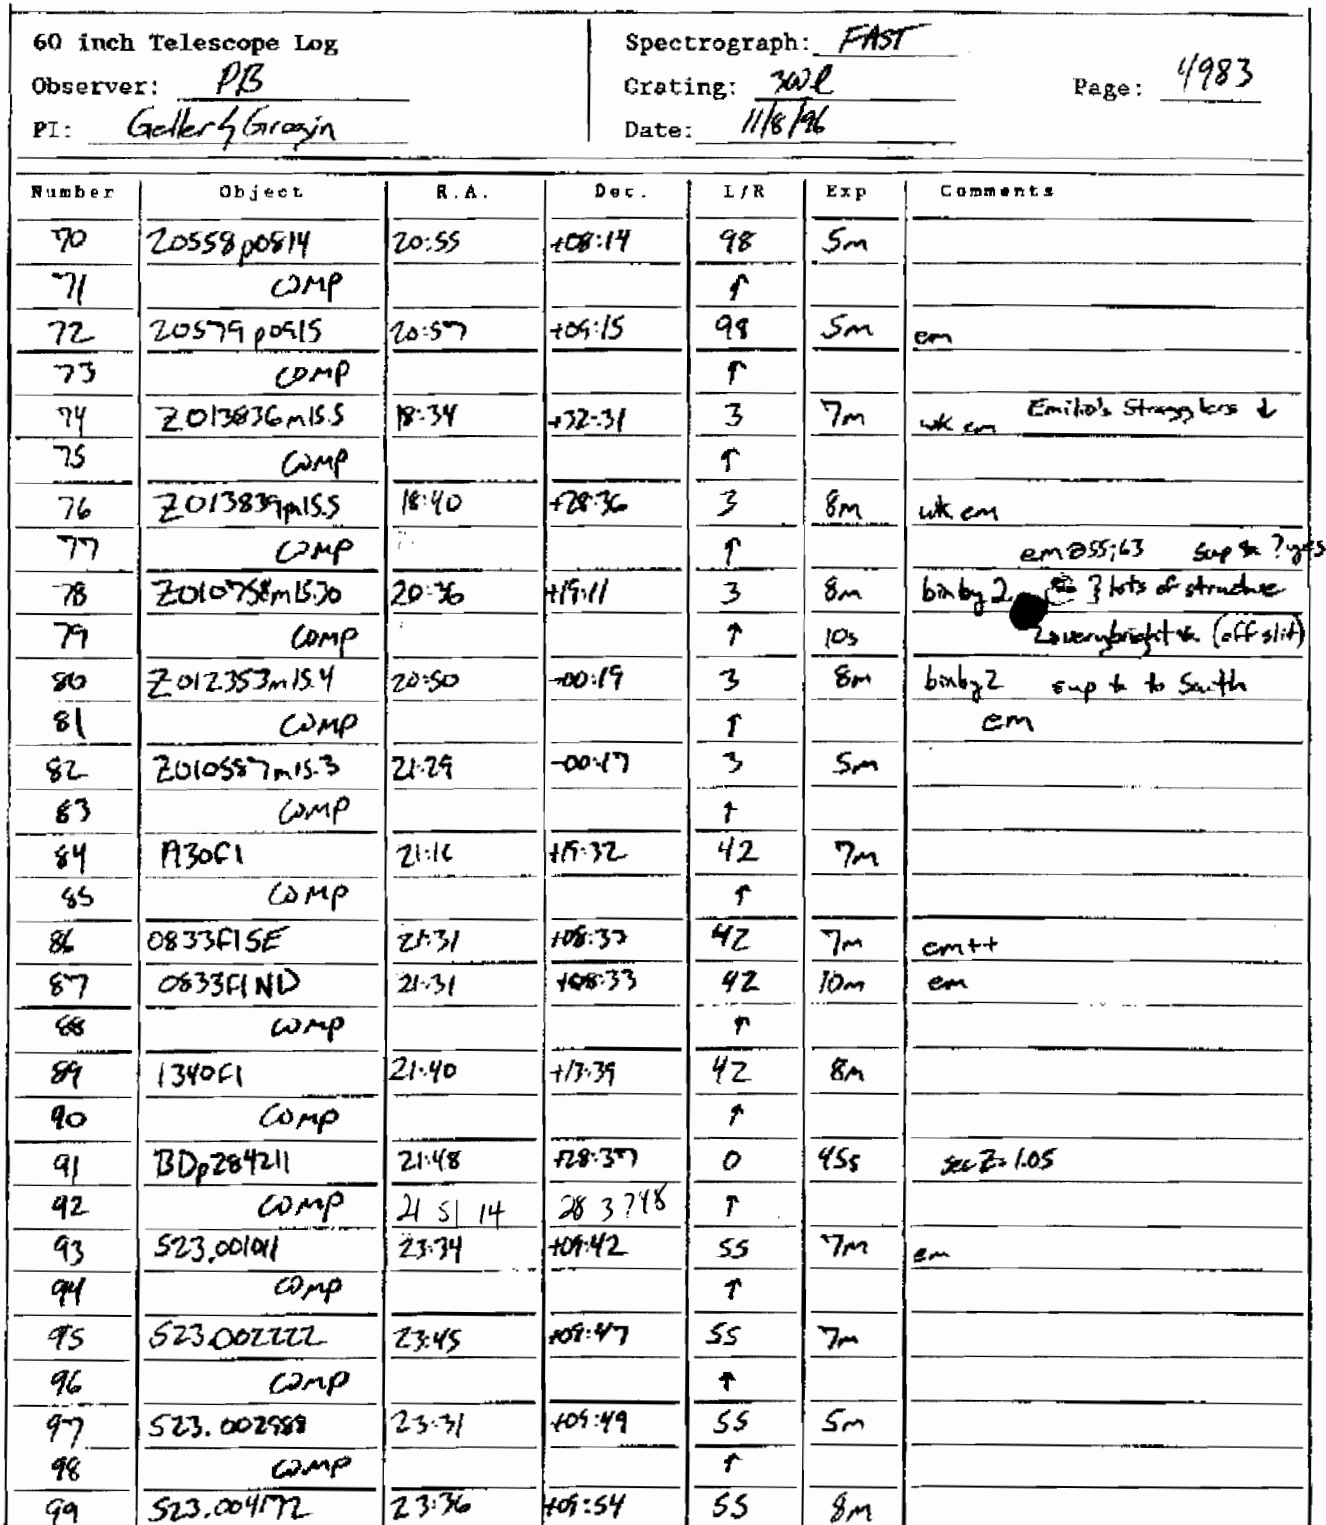 60 inch Telescope Log Spectrograph: FAST
Observer: PB Grating: 300l Page: 4983
PI: Geller & Grogin Date: 11/8/96
Number Object R.A. Dec. L/R Exp Comments
70 Z0558p0814 20:55 +08:14 98 5m
71 COMP ↑
72 Z0579p0915 20:57 +09:15 98 5m em
73 COMP ↑
74 Z013836m15.5 18:34 +32:31 3 7m wk em Emilio's Stragglers ↓
75 COMP ↑
76 Z013839m15.5 18:40 +28:36 3 8m wk em
77 COMP ↑ em @ 55;63 sup * ? yes
78 Z010758m15.30 20:36 +19:11 3 8m bin by 2 } lots of structure
79 COMP ↑ 10s very bright *. (off slit)
80 Z012353m15.4 20:50 -00:19 3 8m bin by 2 sup * to South
81 COMP ↑ em
82 Z010587m15.3 21:29 -00:17 3 5m
83 COMP ↑
84 A30F1 21:16 +19:32 42 7m
85 COMP ↑
86 0833F1SE 21:31 +08:33 42 7m em++
87 0833F1ND 21:31 +08:33 42 10m em
88 COMP ↑
89 1340F1 21:40 +13:39 42 8m
90 COMP ↑
91 BDp284211 21:48 +28:37 0 45s sec Z=1.05
92 COMP 21 51 14 28 3748 ↑
93 S23.001011 23:34 +09:42 55 7m em
94 COMP ↑
95 S23.002222 23:45 +09:47 55 7m
96 COMP ↑
97 S23.002988 23:31 +09:49 55 5m
98 COMP ↑
99 S23.004172 23:36 +09:54 55 8m